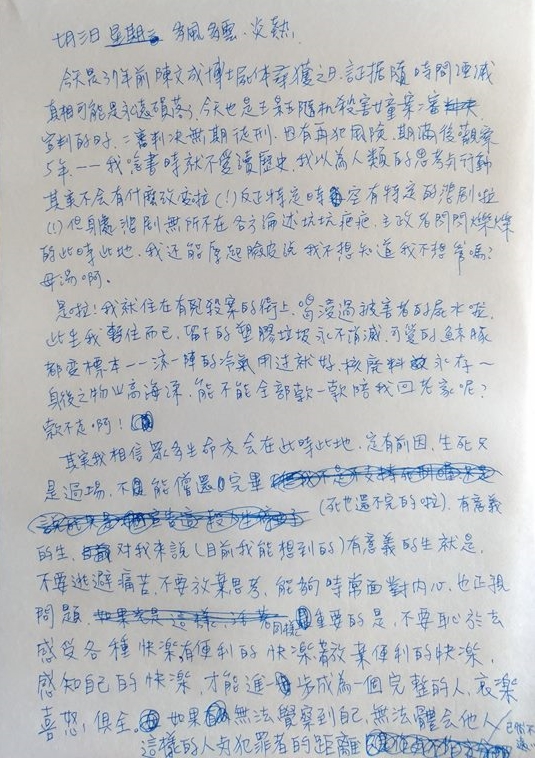 七月三日 星期三 多風多雲.炎熱.
今天是37年前陳文成博士屍體尋獲之日.証据隨時間湮滅
真相可能是永遠殞落了.今天也是王景玉隨机殺害女童案二審
宣判的日子.二審判決無期徒刑.因有再犯風險.期滿後觀察
5年——我唸書時就不愛讀歷史.我以為人類的思考与行動
其實不會有什麼改變啦(!)反正特定時空有特定的悲劇啦
(!)但身處悲劇無所不在各方論述坑坑疤疤.主政者閃閃爍爍
的此時此地.我还能厚起臉皮說我不想知道我不想管嗎?
毋湯啊。
是啦!我就住在有兇殺案的街上.喝浸過被害者的屍水啦.
此生我暫住而已.留下的塑膠垃圾永不消滅.可愛的鯨豚
都变標本——涼一陣的冷氣用过就好.核廢料永存～
身後之物山高海深.能不能全部款一款陪我回老家呢?
款不走啊!
其實我相信眾多生命友会在此時此地.定有前因.生死又
是過場.不能償還完畢
(死也還不完的啦).有意義
的生.對我來說(目前我能想到的)有意義的生就是.
不要逃避痛苦.不要放棄思考.能夠時常面對内心.也正視
問題. 同樣重要的是.不要恥於去
感受各種快樂.有便利的快樂放棄便利的快樂.
感知自己的快樂.才能進一步成為一個完整的人.哀樂
喜怒.俱全.如果無法覺察到自己.無法體会他人
這樣的人与犯罪者的距離